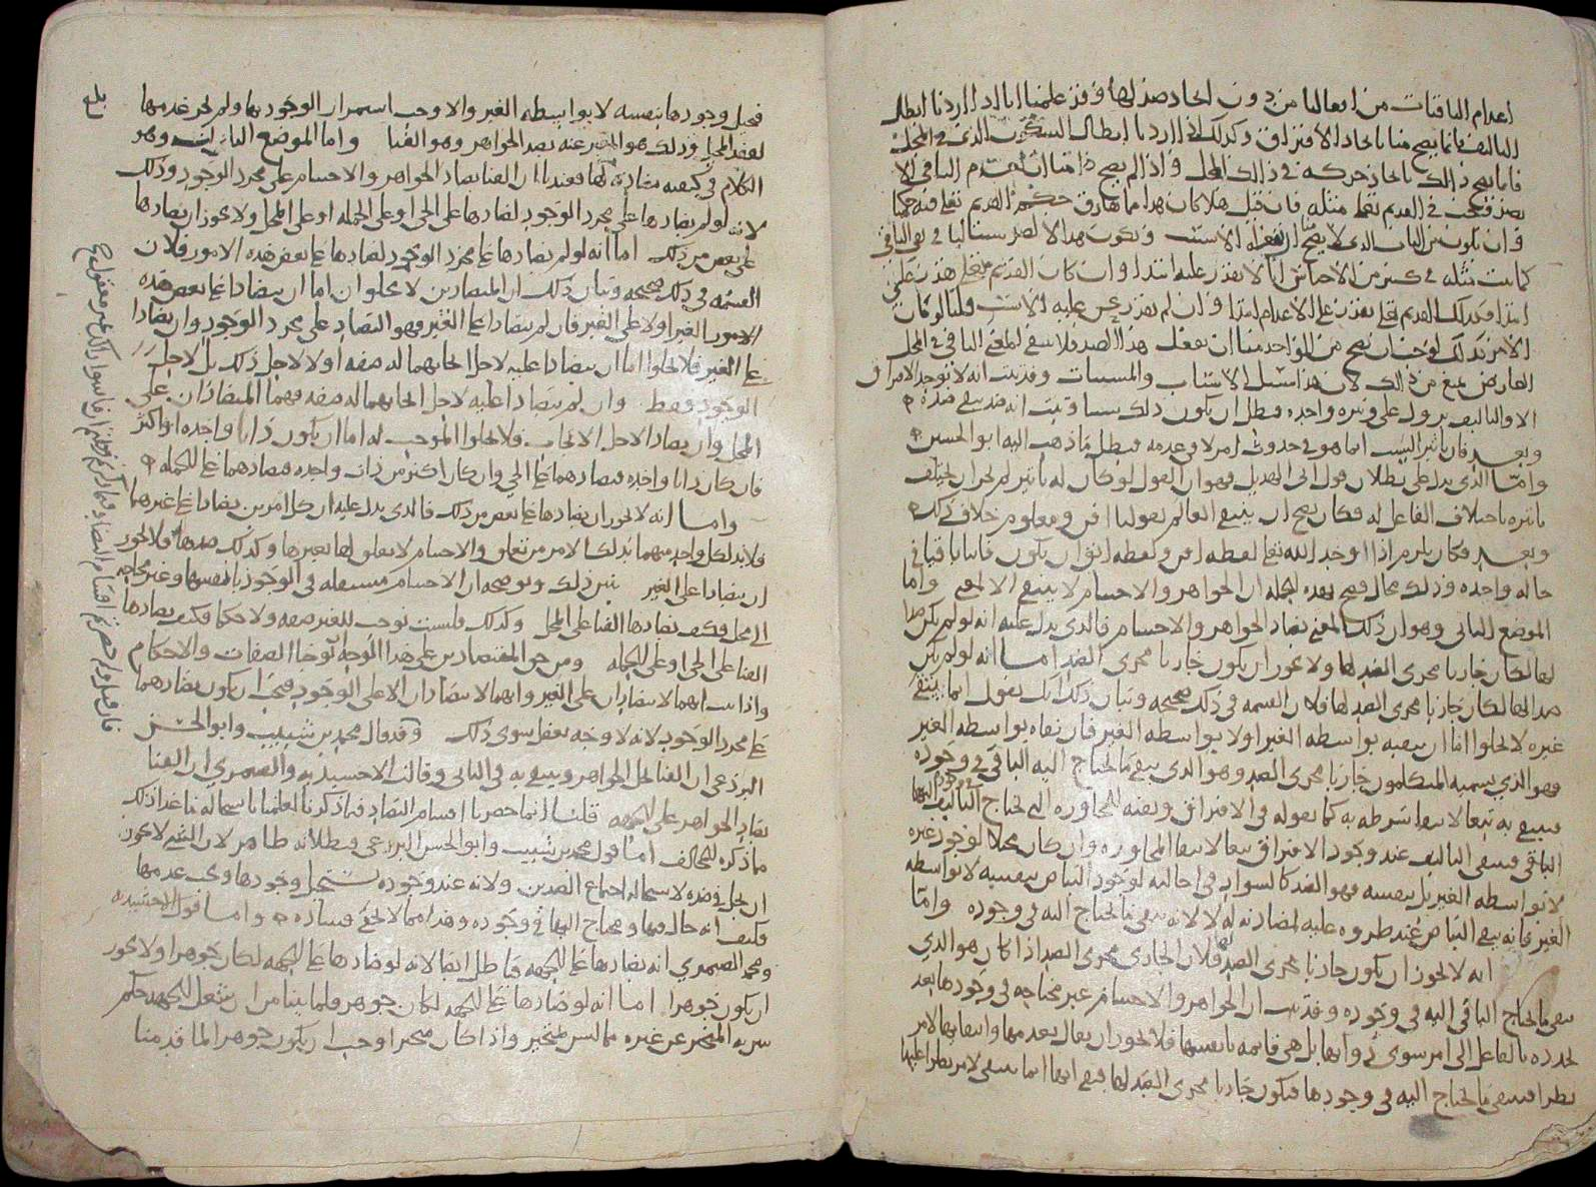 اعدام الباقيات من افعالنا من دون ايجاد ضد لها وقد علمنا انا اذا اردنا ابطال
التاليف فانما يصح منا بايجاد الافتراق وكذلك اذا اردنا ابطال السكون الذي في المحل
فانما يصح ذلك بايجاد حركة في ذلك المحل واذا لم يصح منا ان نعدم الباقي الا
بضد فيجب في القديم تعالى مثله فان قيل هلا كان هذا مما فارق حكم القديم تعالى فيه حكمنا
وان يكون من الباب الذي لا يصح ان نفعله الا بسبب ويكون هذا الضد سببا لنا في نفي الباقي
كما ثبت مثله في كثير من الاجناس انا لا نقدر عليه ابتدا وان كان القديم تعالى يقدر على
ابتدا فكذلك القديم تعالى يقدر على الاعدام ابتدا وان لم يقدر غيره عليه الا بسبب قلنا لو كان
الامر كذلك لوجب ان يصح من الواحد منا ان يفعل هذا الضد فلا ينتفي المعنى الباقي في المحل
لعارض يمنع من ذلك لان هذا سبيل الاسباب والمسببات وقد ثبت انه لا يوجد الافتراق
الا والتاليف يزول على وتيرة واحدة فبطل ان يكون ذلك سببا وثبت انه ضد ينفي ضده
وبعد فان تاثير السبب انما هو في حدوث امر لا في عدمه فبطل ما ذهب اليه ابو الحسين
واما الذي يدل على بطلان قول ابي الهذيل فهو ان القول لو كان له تاثير لم يجز ان يختلف
تاثيره باختلاف الفاعل له فكان يصح ان ينتفي العالم بقولنا افن ومعلوم خلاف ذلك
وبعد فكان يلزم اذا اوجد الله تعالى لفظة افن ولفظة ابق ان يكون فانيا باقيا في
حالة واحدة وذلك محال فصح بهذه الجملة ان الجواهر والاجسام لا ينتفي الا بمعنى واما
الموضع الثاني وهو ان ذلك المعنى يضاد الجواهر والاجسام فالذي يدل عليه انه لو لم يكن ضدا
لها لكان جاريا مجرى الضد لها ولا يجوز ان يكون جاريا مجرى الضد اما انه لو لم يكن
ضدا لها لكان جاريا مجرى الضد لها فلان القسمة في ذلك صحيحة وبيان ذلك انك تقول انما ينفي
غيره لا يخلوا اما ان ينفيه بواسطة الغير او لا بواسطة الغير فان نفاه بواسطة الغير
فهو الذي يسميه المتكلمون جاريا مجرى الضد وهو الذي ينفي ما يحتاج اليه الباقي في وجوده
فينتفي به تبعا لانتفا شرطه به كما نقوله في الافتراق ونفيه للمجاورة التي يحتاج التاليف اليها
الباقي فينتفي التاليف عند وجود الافتراق تبعا لانتفا المجاورة وان كان محلا لوجود غيره
لا بواسطة الغير بل بنفسه فهو الضد كالسواد في احالته لوجود البياض بنفسه لا بواسطة
الغير فانه ينفي البياض عند طروه عليه لمضادته له لا لانه ينفي ما يحتاج اليه في وجوده واما
انه لا يجوز ان يكون جاريا مجرى الضد لها فلان الجاري مجرى الضد اذا كان هو الذي
ينفي ما يحتاج الباقي اليه في وجوده وقد ثبت ان الجواهر والاجسام غير محتاجه في وجودها بعد
تجدده بالفاعل الى امر سوى ذواتها بل هي قايمة بانفسها فلا يجوز ان يقال بعدمها وانتفايها لامر
يطرا فينفي ما يحتاج اليه في وجودها فيكون جاريا مجرى الضد لها فبقي انها انما ينتفي لامر يطرا عليها
فيحيل وجودها بنفسه لا بواسطة الغير والا وجب استمرار الوجود بها ولم يجز عدمها
لفقد المحيل وذلك هو المعبر عنه بضد الجواهر وهو الفنا واما الموضع الثالث وهو
الكلام في كيفية مضادته لها فعندنا ان الفنا يضاد الجواهر والاجسام على مجرد الوجود وذلك
لانه لو لم يضادها على مجرد الوجود لضادها على الحي او على الجملة او على المحل ولا يجوز ان يضادها
على بعض من ذلك اما انه لو لم يضادها على مجرد الوجود لضادها على بعض هذه الامور فلان
القسمة في ذلك صحيحة وبيان ذلك ان المتضادين لا يخلو ان اما ان يتضادا على بعض هذه
الامور الغير او لا على الغير فان لم يتضادا على الغير فهو التضاد على مجرد الوجود وان يضادا
على الغير فلا يخلوا اما ان يتضادا عليه لاجل ايجابهما له صفة او لا لاجل ذلك بل لاجل
الوجود فقط وان لم يتضادا عليه لاجل ايجابهما له صفة فهما المتضادان على
المحل وان يضادا لاجل الايجاب فلا يخلوا الموجب له اما ان يكون ذاتا واحدة او اكثر
فان كان ذاتا واحدة فتضادهما على الحي وان كان اكثر من ذات واحدة فتضادهما على الجملة
واما انه لا يجوز ان يضادها على بعض من ذلك فالذي يدل عليه ان كل امرين يضادا على غيرهما
فلا بد لكل واحد منهما بذلك الامر من تعلق والاجسام لا تعلق لها بغيرها وكذلك ضدها فلا يجوز
ان يتضادا على الغير يبين ذلك ويوضحه ان الاجسام مستقلة في الوجود بانفسها وغير محتاجه
الى محل فكيف يضادها الفنا على المحل وكذلك فليست توجب للغير صفة ولا حكما فكيف يضادها
الفنا على الحي او على الجملة ومن حق المتضادين على هذا الوجه ان يوجبا الصفات والاحكام
واذا ثبت انهما لا يتضادان على الغير وانهما لا يتضادان الا على الوجود فيجب ان يكون يضادهما
على مجرد الوجود لانه لا وجه يعقل سوى ذلك وقد قال محمد بن شبيب وابو الحسن
البرذعي ان الفنا يحل الجواهر وينتفي به في الثاني وقالت الاخشيدية والصيمري ان الفنا
يضاد الجواهر على الجهة قلنا انما حصرنا اقسام التضاد فيما ذكرنا لعلمنا باستحالة ما عدا ذلك
ما ذكره المخالف اما قول محمد بن شبيب وابو الحسن البرذعي فبطلانه ظاهر لان الشي لا يجوز
ان يحل في ضده لاستحالة اجتماع الضدين ولانه عند وجوده يستحيل وجودها ويجب عدمها
فكيف انه حال فيها ومحتاج اليها في وجوده وهذا مما لا يخفى فساده واما قول الاخشيدية
ومحمد الصيمري انه يضادها على الجهة فباطل ايضا لانه لو ضادها على الجهة لكان جوهرا ولا يجوز
ان يكون جوهرا اما انه لو ضادها على الجهة لكان جوهر فلما بينا من ان شغل الجهة حكم
يبين به المتحيز عن غيره مما ليس بمتحيز واذا كان متحيزا وجب ان يكون جوهرا لما قدمنا
بلغ